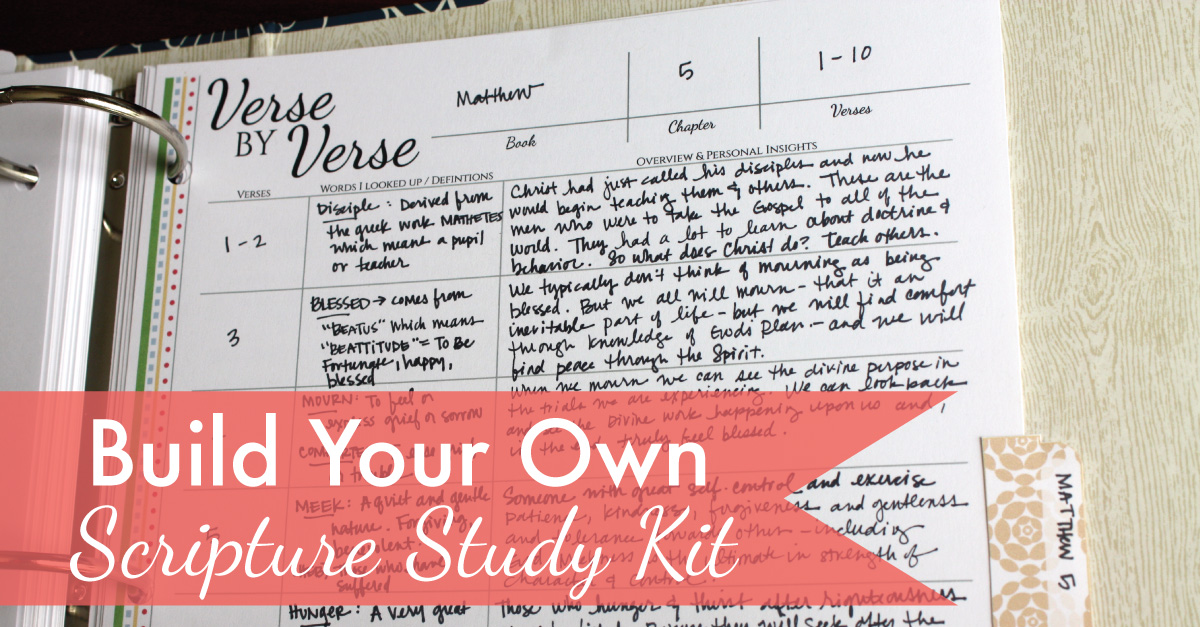 Verse
BY Verse
Matthew
5
1-10
Book
Chapter
Verses
VERSES
WORDS I LOOKED UP / DEFINTIONS
OVERVIEW & PERSONAL INSIGHTS
1-2
Disciple: Derived from
the greek work MATHETES
which meant a pupil
or teacher
Christ had just called his disciples and now he
would begin teaching them & others. These are the
men who were to take the Gospel to all of the
world. They had a lot to learn about doctrine &
behavior. So what does Christ do? Teach others.
3
BLESSED → comes from
"BEATUS" which means
"BEATTITUDE" = To Be
Fortunate, happy,
blessed
We typically don't think of mourning as being
blessed. But we all will mourn - that it an
inevitable part of life - but we will find comfort
through knowledge of Gods Plan - and we will
find peace through the Spirit.
MOURN: To feel or
express grief or sorrow
When we mourn we can see the divine purpose in
the trials we are experiencing. We can look back
and see the Divine work happening upon us and,
truly feel blessed.
5
MEEK: A quiet and gentle
nature. Forgiving,
suffered
Someone with great self control and exercise
patience, kindness, forgiveness and gentleness
and tolerance towards others - including
ultimate in strength of
character & control.
HUNGER: A very great
Those who hunger & thirst after righteousness
Build Your Own
Scripture Study Kit
MATTHEW 5